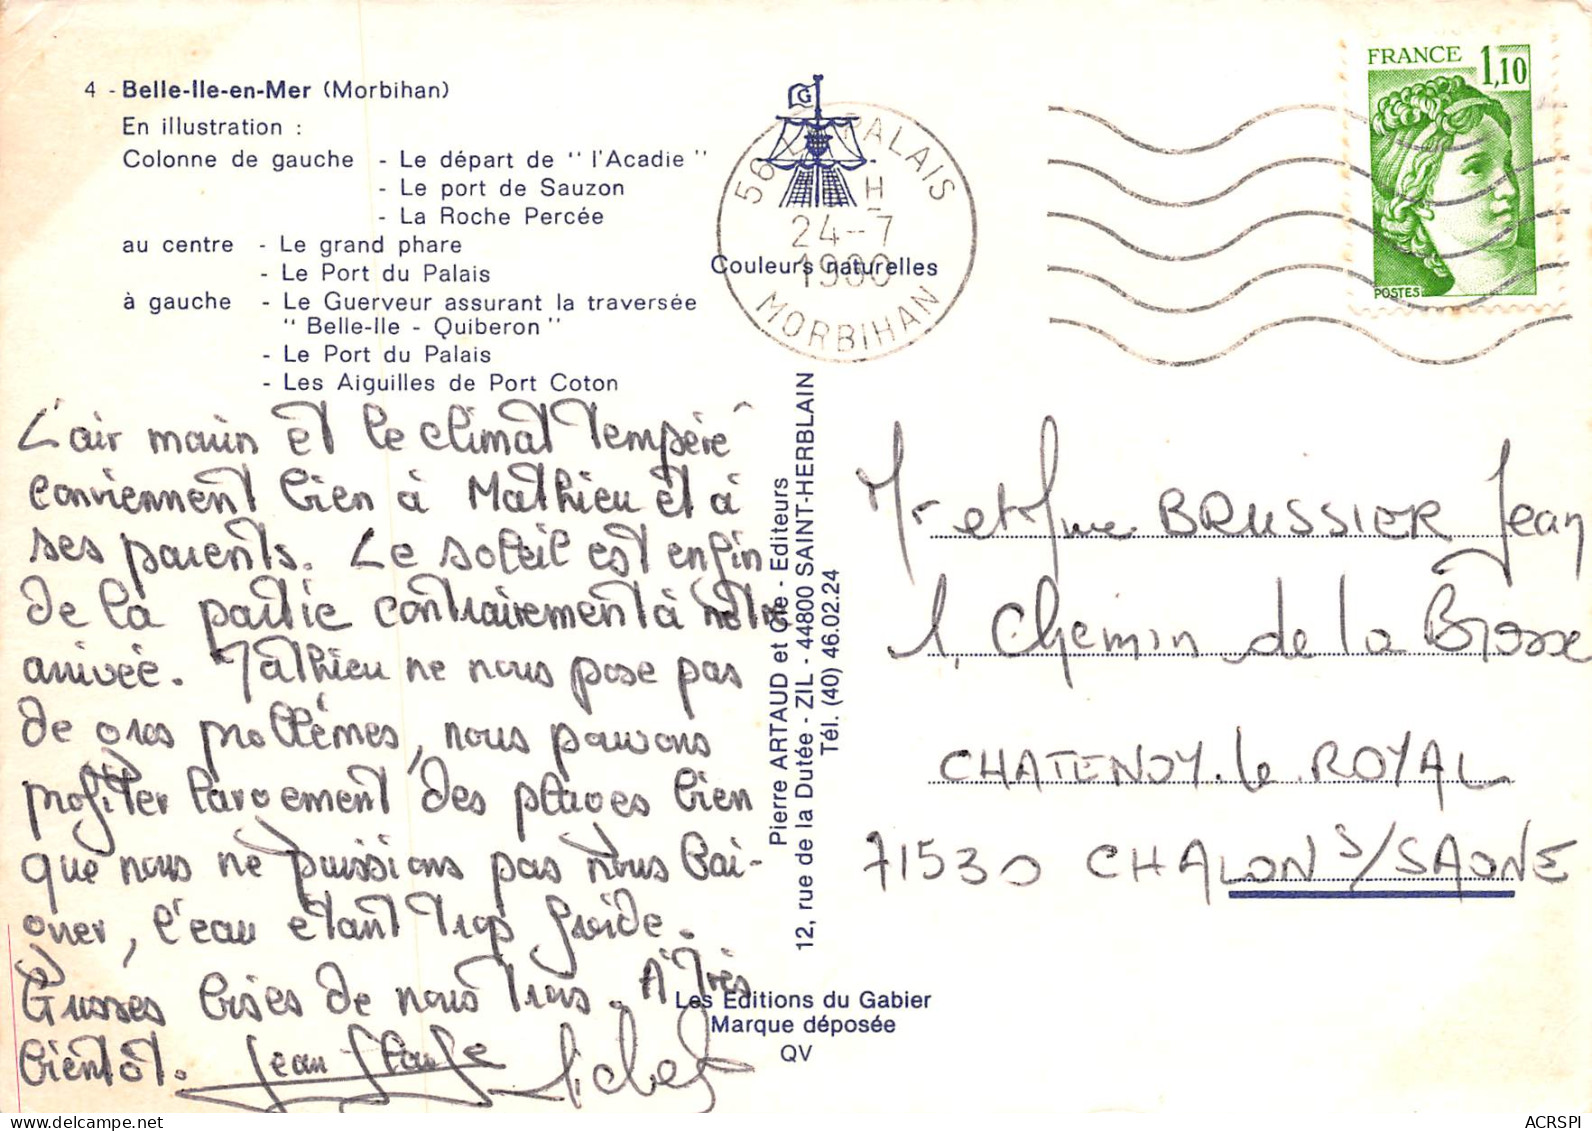 4 - Belle-Ile-en-Mer (Morbihan)
En illustration :
Colonne de gauche - Le départ de "l'Acadie"
- Le port de Sauzon
- La Roche Percée
au centre - Le grand phare
- Le Port du Palais
à gauche - Le Guerveur assurant la traversée
"Belle-Ile - Quiberon"
- Le Port du Palais
- Les Aiguilles de Port Coton
L'air marin et le climat tempéré
conviennent bien à Mathieu et à
ses parents. Le soleil est enfin
de la partie contrairement à notre
arrivée. Mathieu ne nous pose pas
de gros problèmes, nous pouvons
profiter largement des plages bien
que nous ne puissions pas nous bai-
gner, l'eau étant trop froide.
Grosses bises de nous trois. A très
bientôt. Jean Claude Michel
G
56 LE PALAIS
H
24-7
1980
MORBIHAN
Couleurs naturelles
Pierre ARTAUD et Cie - Editeurs
12, rue de la Dutée - ZIL - 44800 SAINT-HERBLAIN
Tél. (40) 46.02.24
Les Editions du Gabier
Marque déposée
QV
FRANCE 1,10
POSTES
Mr et Mme BRUSSIER Jean
1, Chemin de la Brosse
CHATENOY le ROYAL
71530 CHALON S/SAONE
ACRSPI